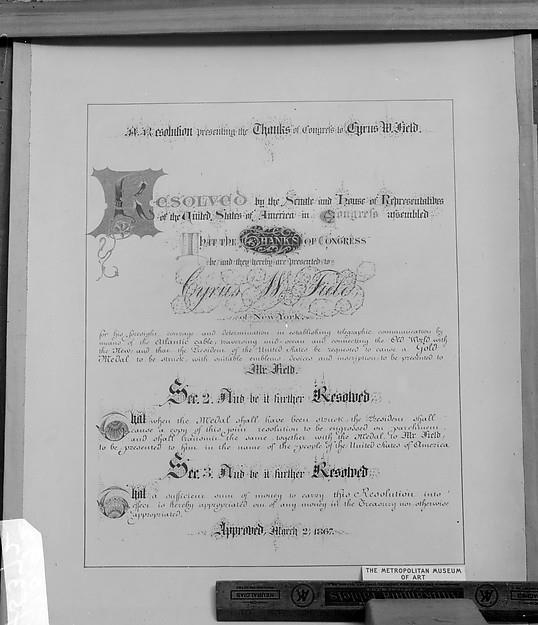 A Resolution presenting the Thanks of Congress to Cyrus W. Field.
RESOLVED by the Senate and House of Representatives
of the United States of America in Congress assembled
THAT THE THANKS OF CONGRESS
be and they hereby are presented to
Cyrus W. Field,
of New York,
for his foresight, courage and determination in establishing telegraphic communication by
means of the Atlantic cable, traversing mid-ocean and connecting the Old World with
the New; and that the President of the United States be requested to cause a Gold
Medal to be struck, with suitable emblems, devices and inscription to be presented to
Mr. Field.
Sec. 2. And be it further Resolved
That when the Medal shall have been struck, the President shall
cause a copy of this joint resolution to be engrossed on parchment
and shall transmit the same, together with the Medal, to Mr. Field,
to be presented to him in the name of the people of the United States of America
Sec. 3. And be it further Resolved
That a sufficient sum of money to carry this Resolution into
effect is hereby appropriated out of any money in the Treasury not otherwise
appropriated.
Approved, March 2, 1867.
THE METROPOLITAN MUSEUM
OF ART
NEURALGIAS